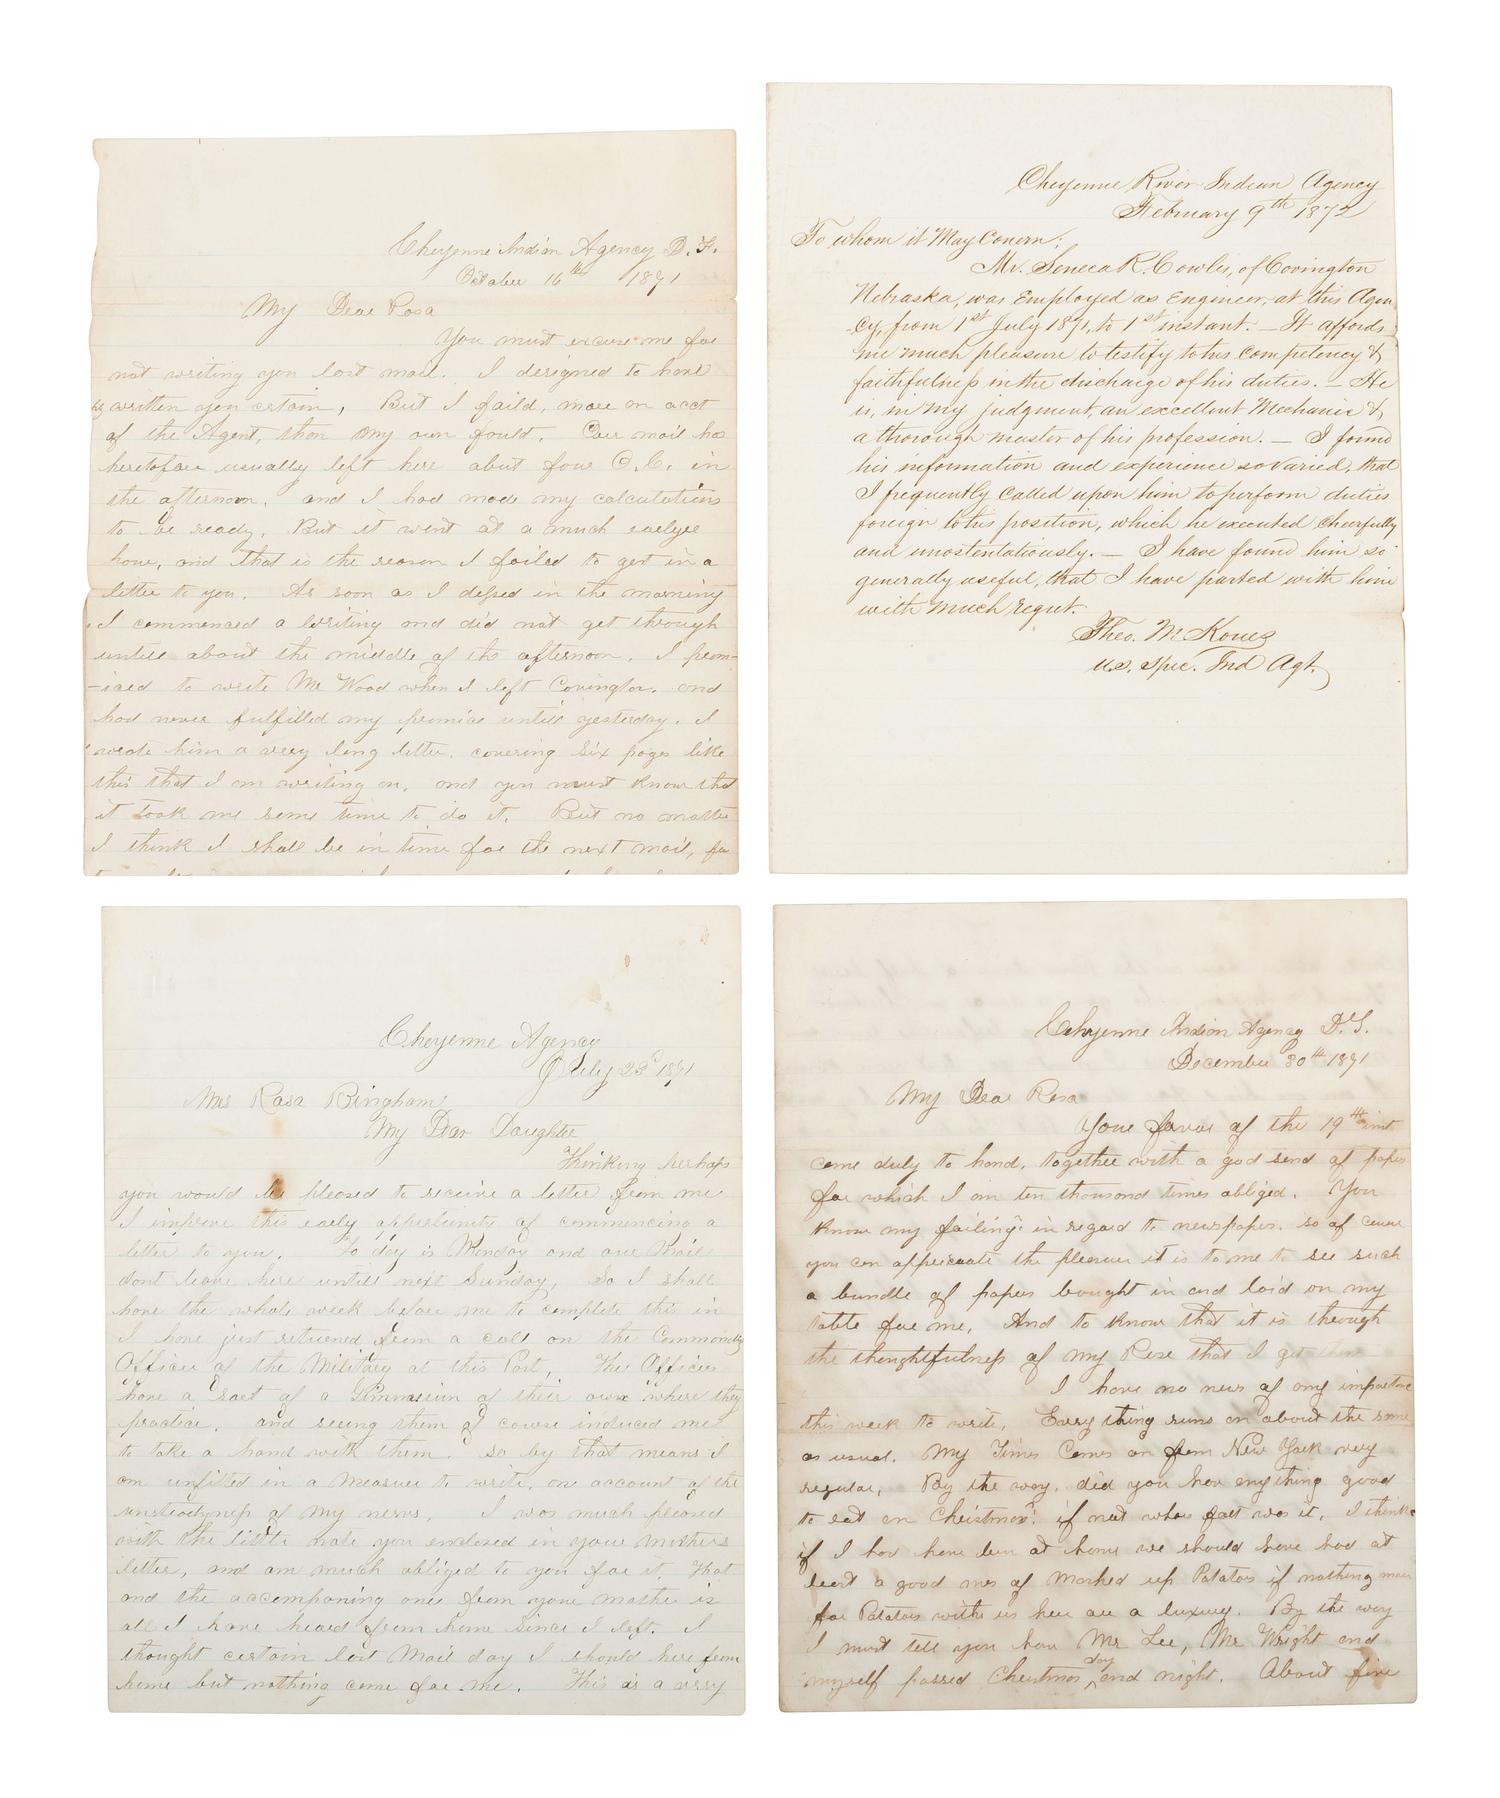 Cheyenne Indian Agency D. T.
October 16th 1871
My Dear Rosa
You must excuse me for
not writing you last mail. I designed to have
written you certain, But I faild, more on acct
of the Agent, than my own fould. Our mail has
heretofore usually left here abut four O.C. in
the afternoon. and I had made my calculations
to be ready. But it went at a much earlyer
hour, and that is the reason I failed to get in a
letter to you. As soon as I in the morning
I commenced a writing and did not get through
untill about the middle of the afternoon. I prom-
-ised to write Mr Wood when I left Covington. and
had never fulfilled my promise untill yesterday. I
wrote him a very long letter. covering six pages like
this that I am writing on, and you must know that
it took me some time to do it. But no matter
I think I shall be in time for the next mail, for
Cheyenne River Indian Agency
February 9th 1872
To whom it May Conern;
Mr. Seneca R. Cowles, of Covington
Nebraska, was Employed as Engineer, at this Agen-
cy, from 1st July 1871, to 1st instant. — It affords
me much pleasure to testify to his competency &
faithfulness in the discharge of his duties. — He
is, in my judgment, an excellent Mechanic &
a thorough master of his profession. — I found
his information and experience so varied, that
I frequently called upon him to perform duties
foreign to his position, which he executed cheerfully
and unostentatiously. — I have found him so
generally useful, that I have parted with him
with much regret.
Theo. M. Koues
U.S. Spec. Ind Agt.
Cheyenne Agency
July 23d 1871
Mrs Rosa Bingham
My Dear Daughter
Thinking perhaps
you would be pleased to receive a letter from me
I improve this early oppertunity of commencing a
letter to you. To day is Monday and our Mail
dont leave here untill next Sunday, So I shall
have the whole week before me to complete this in
I have just returned from a call on the Commanding
Officer of the Military at this Post, The Officers
have a sort of a Gimnasium of their own where they
practice, and seeing them of course induced me
to take a hand with them. so by that means I
am unfitted in a Measure to write, on account of the
unstedyness of my nerves. I was much pleased
with the little note you enclosed in your Mothers
letter, and am much obliged to you for it, That
and the accompaning one from your mother is
all I have heard from home since I left. I
thought certain last Mail day I should here from
home but nothing come for me. This is a very
Cheyenne Indian Agency D.T.
December 30th 1871
My Dear Rosa
Your favor of the 19th inst
come duly to hand, together with a god send of papers
for which I am ten thousand times obliged. You
know my failing in regard to newspapers. so of course
you can appreceate the pleasure it is to me to see such
a bundle of papers bought in and laid on my
table for me, And to know that it is through
the thoughtfulness of my Rose that I get them
I have no news of any importance
this week to write, Every thing runs on about the same
as usual. My Times Comes on from New York very
regular, By the way, did you hav anything good
to eat on Christmas? if not whos falt was it, I think
if I hav have been at home we should have had at
least a good mes of Mashed up Potatoes if nothing more
for Potatoes with us here are a luxury. By the way
I must tell you how Mr Lee, Mr Wright and
myself passed Christmas day and night. About five